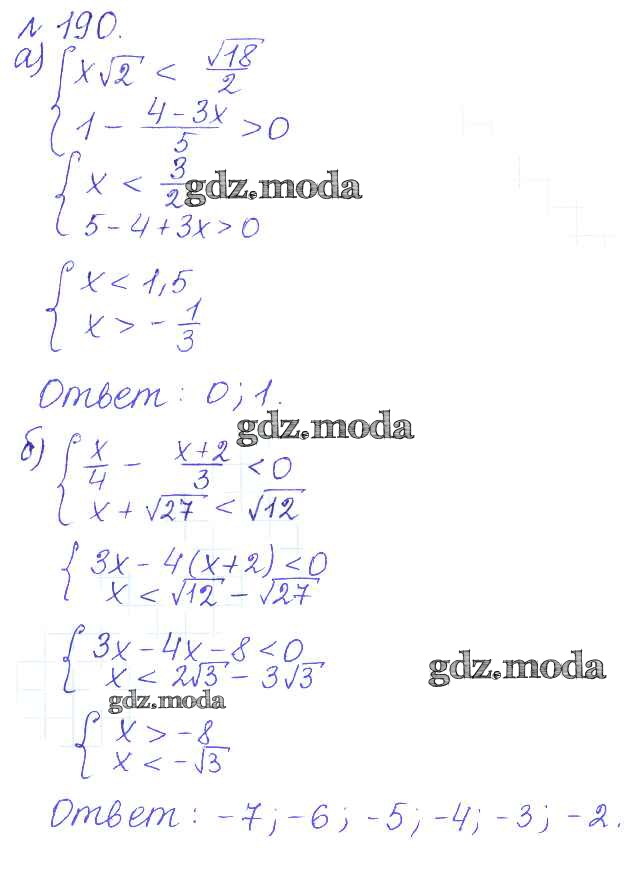 № 190.
а) { x√2 < √18/2
1 - (4-3x)/5 > 0
{ x < 3/2
gdz.moda
5-4+3x>0
{ x < 1,5
x > -1/3
Ответ: 0; 1.
gdz.moda
б) { x/4 - (x+2)/3 < 0
x + √27 < √12
{ 3x - 4(x+2) < 0
x < √12 - √27
{ 3x - 4x - 8 < 0
x < 2√3 - 3√3
gdz.moda
gdz.moda
{ x > -8
x < -√3
Ответ: -7; -6; -5; -4; -3; -2.